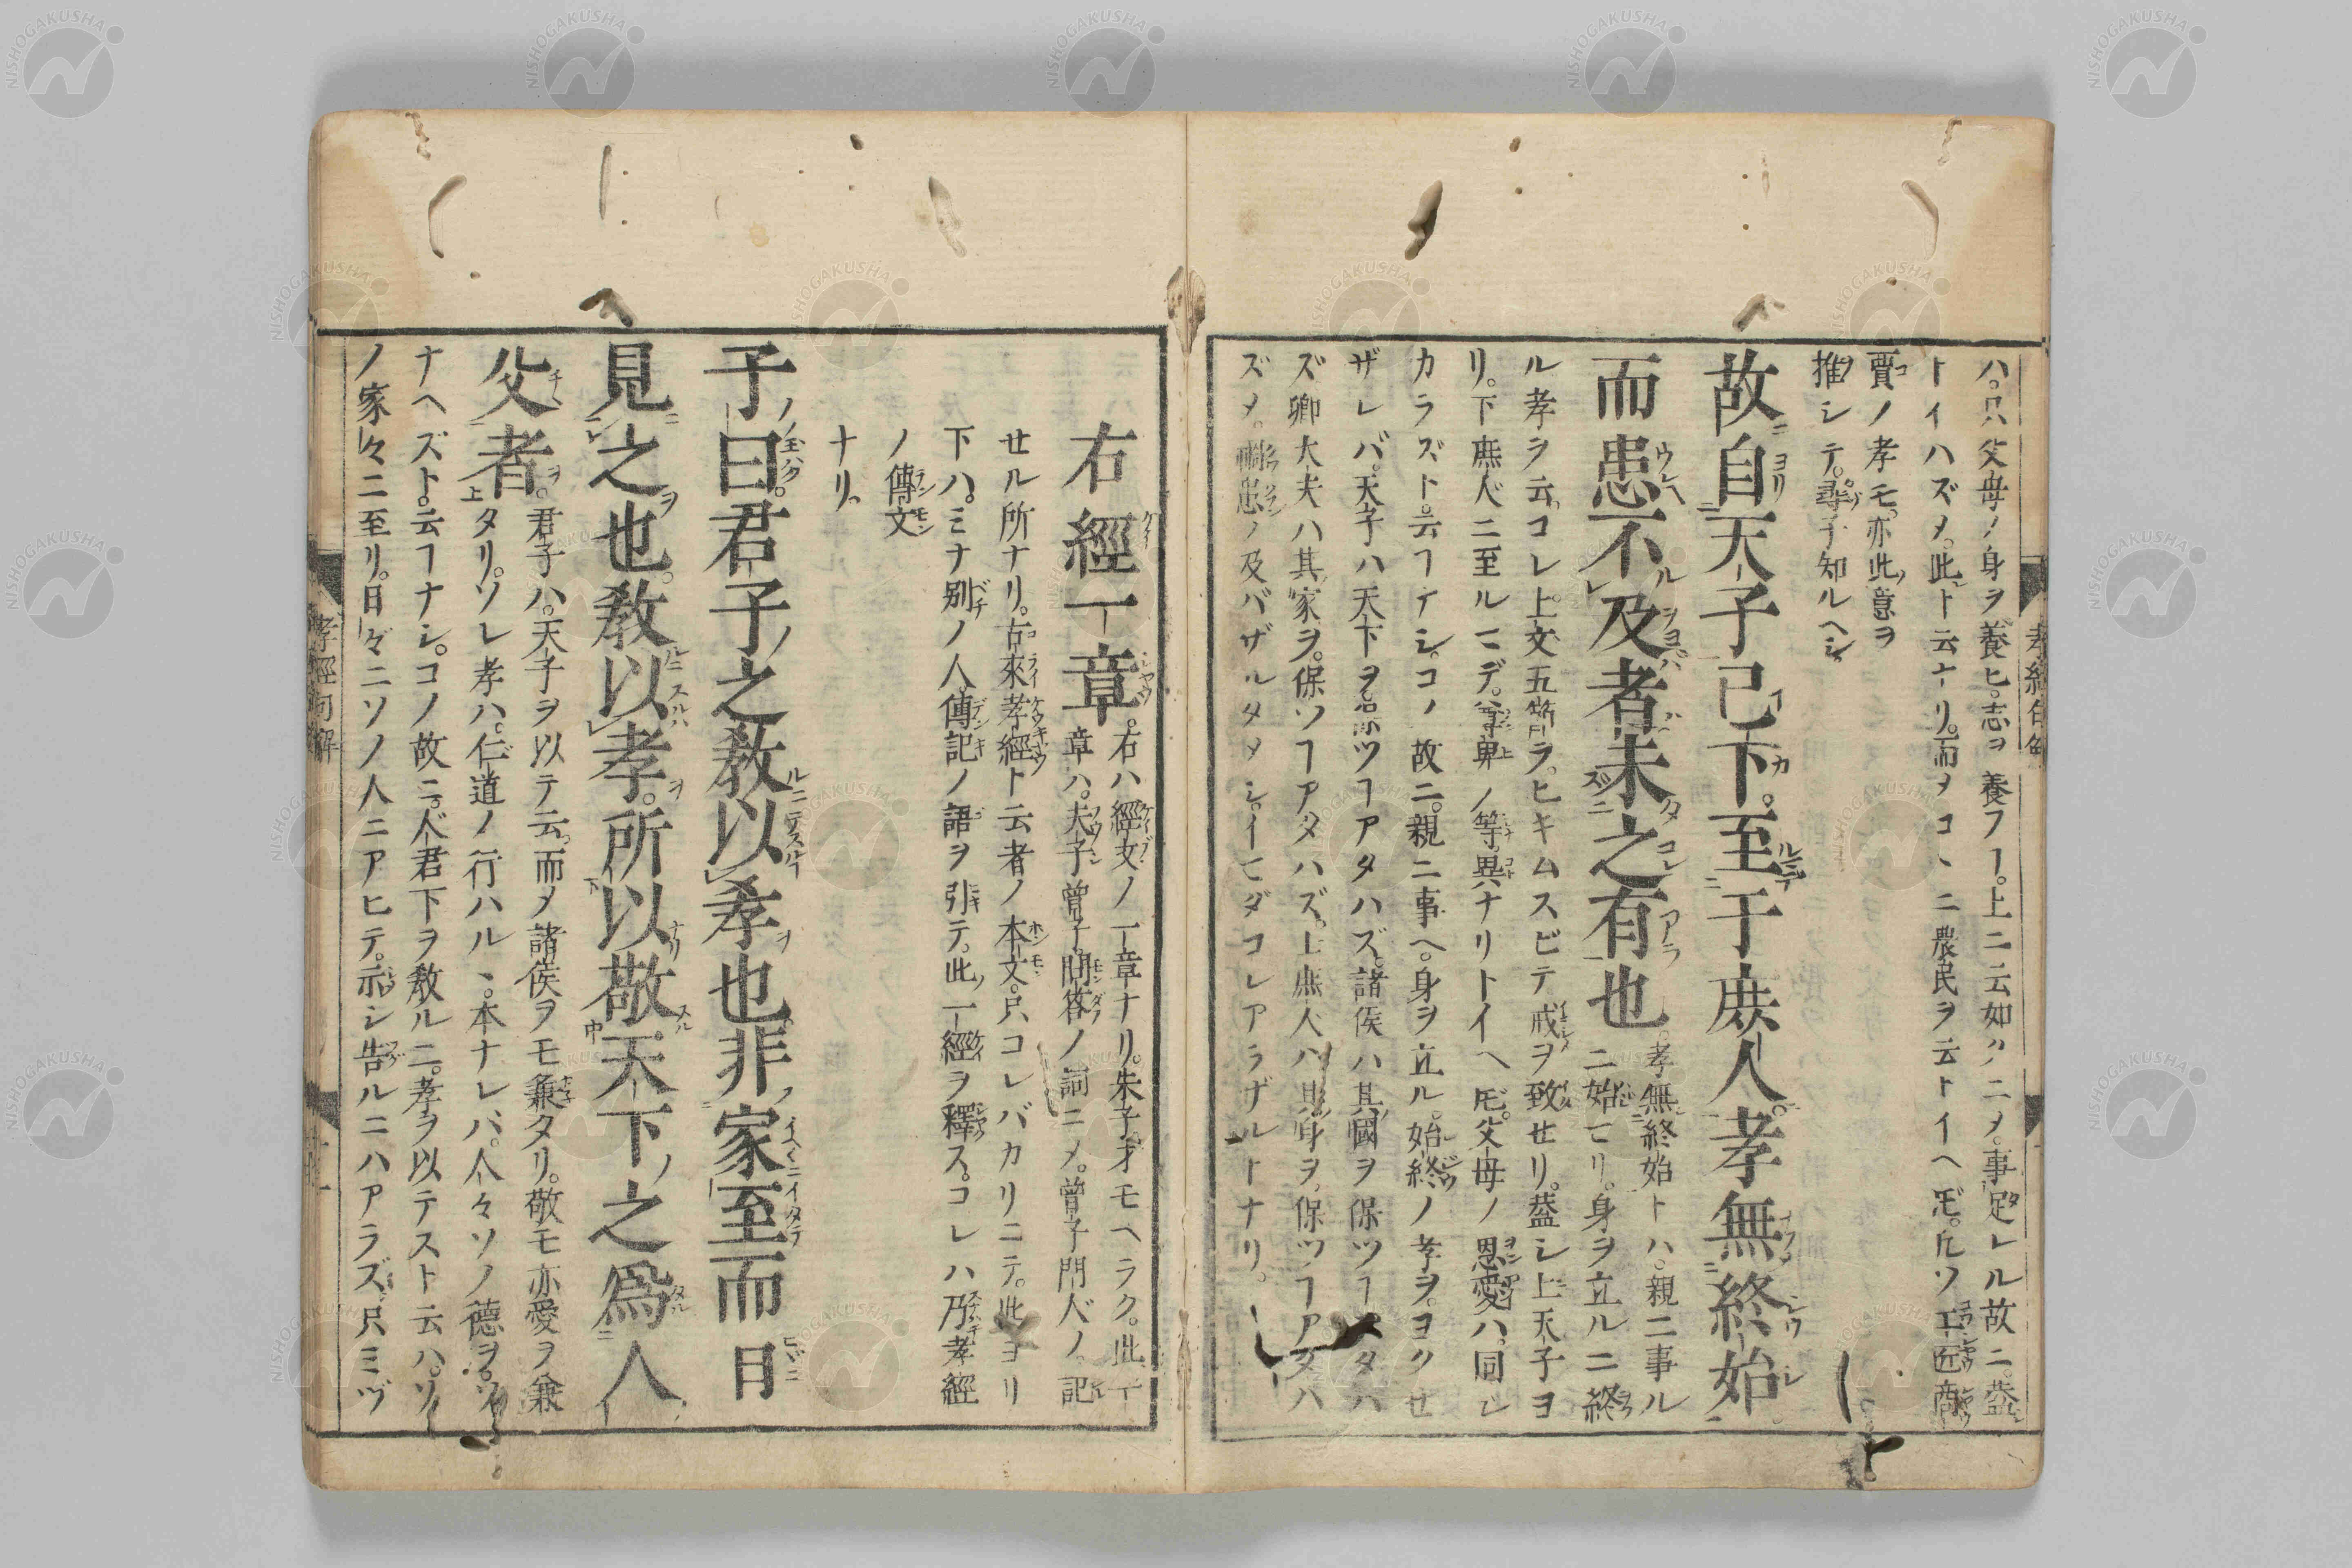 ハ。只父母ノ身ヲ養ヒ。志ヲ養フヿ。上ニ云如クニメ。事足レル故ニ。蓋
トイハズメ。此ト云ナリ。而メコヽニ農民ヲ云トイヘ𪜈。凡ソ工匠商
賈ノ孝モ。亦此意ヲ
推シテ。尋子知ルヘシ
故自天子已下。至于庶人。孝無終始。
而患不及者。未之有也。孝無終始トハ。親ニ事ル
ニ始マリ。身ヲ立ルニ終
ル孝ヲ云。コレ上文五節ヲ。ヒキムスビテ戒ヲ致セリ。蓋シ上天子ヨ
リ。下庶人ニ至ルマデ。尊卑ノ等異ナリトイヘ𪜈。父母ノ恩愛ハ。同シ
カラズト。云ヿイシ。コノ故ニ。親ニ事ヘ。身ヲ立ル。始終ノ孝ヲ。ヨクせ
ザレバ。天子ハ天下ヲ保ツヿアタハズ。諸侯ハ其國ヲ保ツヿアタハ
ズ卿大夫ハ其家ヲ。保ツヿアタハズ。士庶人ハ其身ヲ。保ツヿアタハ
ズメ。禍患ノ及バザルタメシ。イマダコレアラザルトナリ。
右經一章。右ハ經文ノ一章ナリ。朱子オモヘラク。此一
章ハ。夫子曾子問答ノ詞ニメ。曾子門人ノ記
せル所ナリ。古來孝經ト云者ノ本文。只コレバカリニテ。此ヨリ
下ハ。ミナ別ノ人。傳記ノ語ヲ引テ。此一經ヲ釋ス。コレハ乃孝經
ノ傳文
ナリ。
子曰。君子之敎以孝也。非家至而日
見之也。敎以孝。所以敬天下之爲人
父者。君子ハ。天子ヲ以テ云。而メ諸侯ヲモ兼タリ。敬モ亦愛ヲ兼
タリ。ソレ孝ハ。仁道ノ行ハルヽ。本ナレバ。人々ソノ德ヲ。ソ
ナヘズト。云ヿナシ。コノ故ニ。人君下ヲ敎ルニ。孝ヲ以テスト云ハ。ソ
ノ家々ニ至リ。日〻ニソノ人ニアヒテ。示シ告ルニハアラズ。只ミヅ
孝經句解